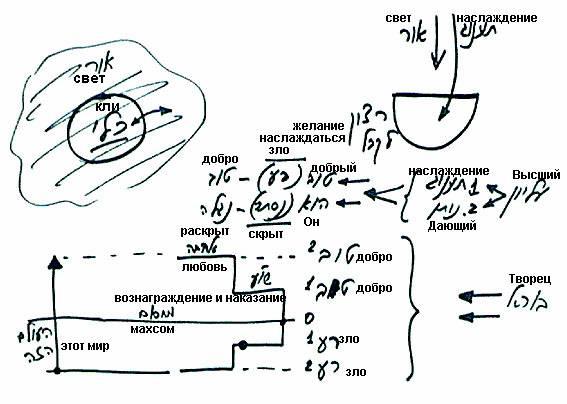 свет наслаждение
אור תענוג
אור
свет
кли
כלי
желание
наслаждаться
הרצון
לקבל
зло
добро добрый
טוב – (רע) טוב
наслаждение
1. תענוג
Высший
עליון
הוא (נסתר) – נגלה
2. נותן
Дающий
раскрыт скрыт Он
אהבה
любовь
2 טוב добро
שו"ע
вознаграждение и наказание
1 טוב добро
Творец
בורא
מחסום
махсом
0
העולם
הזה
этот мир
1 רע зло
2 רע зло